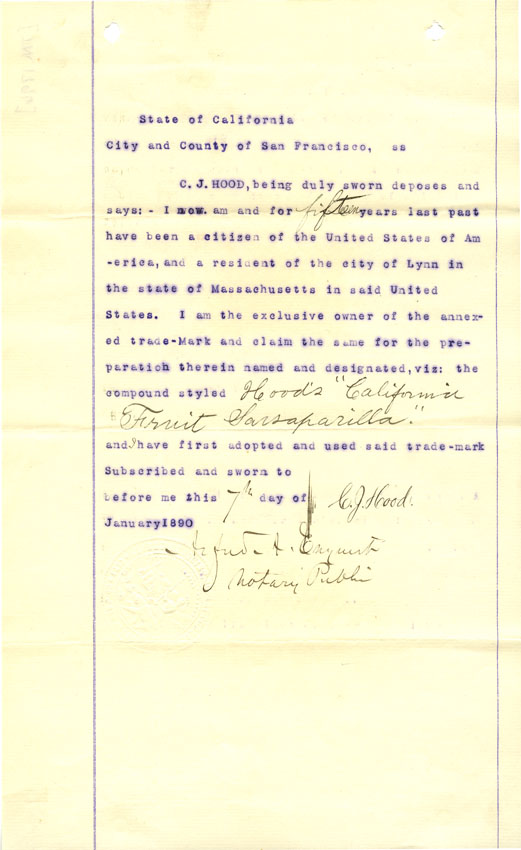 State of California
City and County of San Francisco, ss
C.J.HOOD,being duly sworn deposes and
says:- I now am and for fifteen years last past
have been a citizen of the United States of Am
-erica,and a resident of the city of Lynn in
the state of Massachusetts in said United
States. I am the exclusive owner of the annex-
ed trade-Mark and claim the same for the pre-
paration therein named and designated,viz: the
compound styled Hood's "California
Fruit Sarsaparilla."
and I have first adopted and used said trade-mark
Subscribed and sworn to
before me this 7th day of C.J. Hood.
January1890
Notary Public